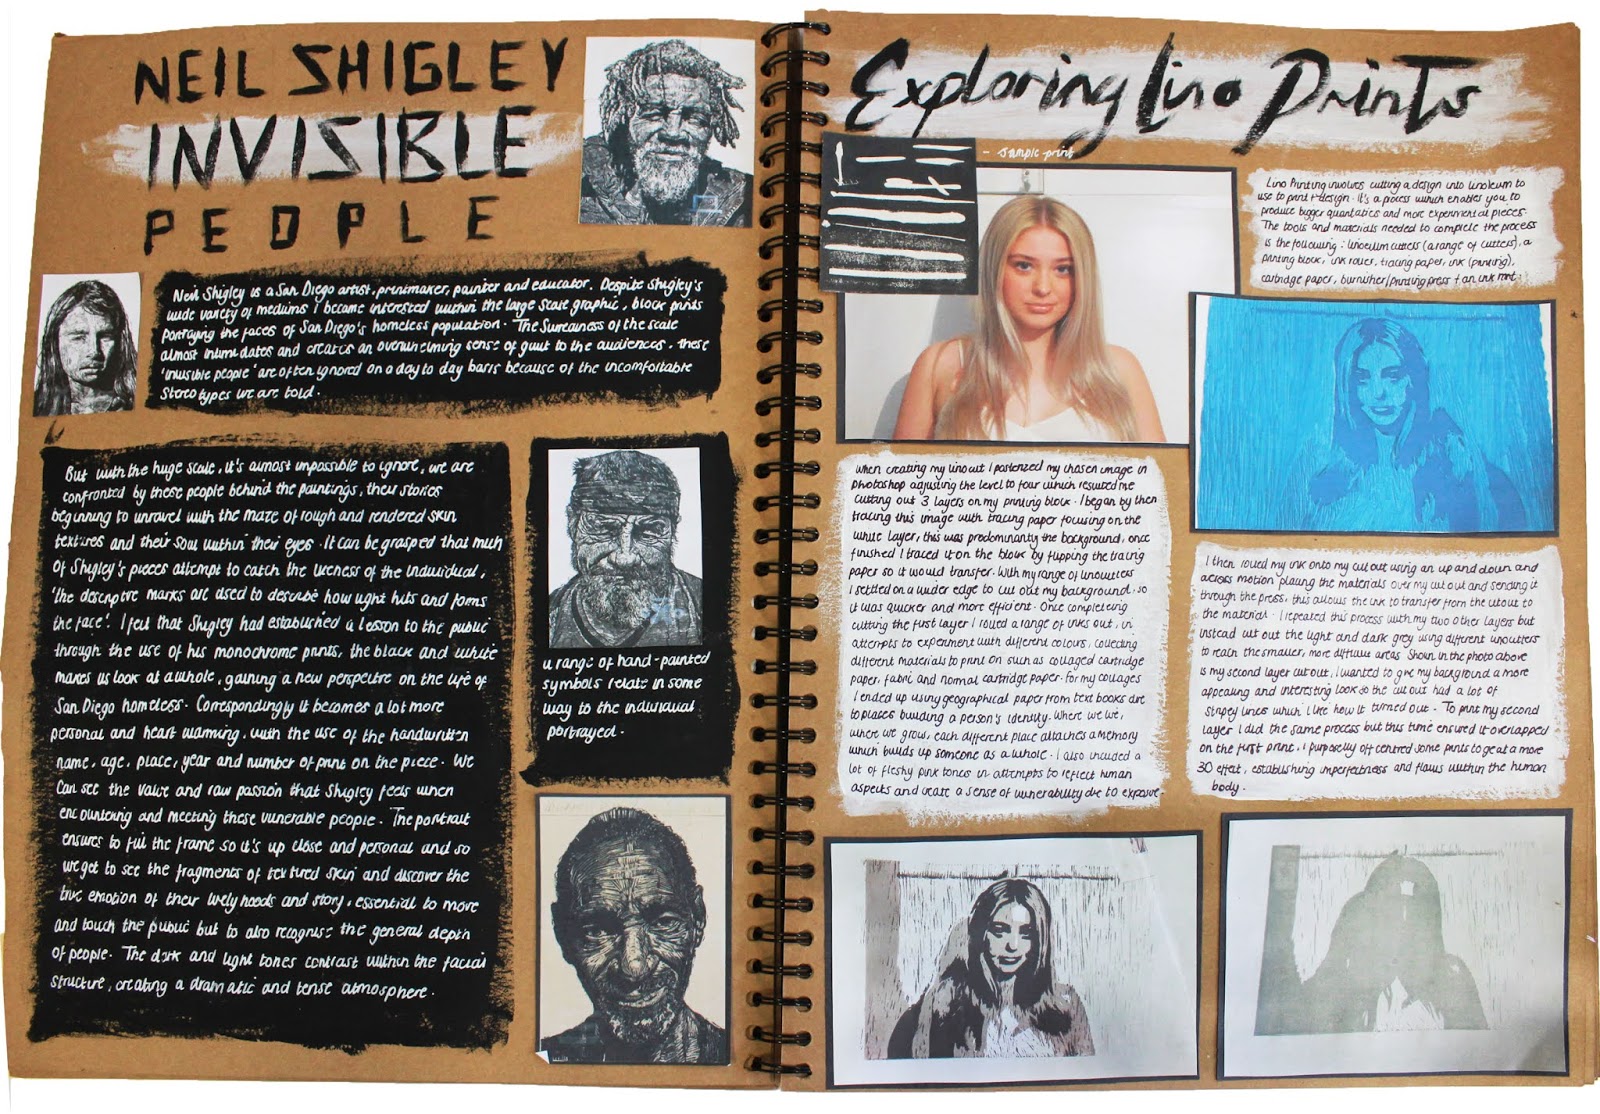 NEIL SHIGLEY
INVISIBLE
PEOPLE
Neil Shigley is a San Diego artist, printmaker, painter and educator. Despite Shigley's
wide variety of mediums I became interested within the large scale graphic, block prints
portraying the faces of San Diego's homeless population. The sureness of the scale
almost intimidates and creates an overwhelming sense of guilt to the audiences. These
'invisible people' are often ignored on a day to day basis because of the uncomfortable
stereotypes we are told.
But with the huge scale, it's almost impossible to ignore, we are
confronted by these people behind the paintings, their stories
beginning to unravel with the maze of rough and rendered skin
textures and their soul within their eyes. It can be grasped that much
of Shigley's pieces attempt to catch the likeness of the individual,
'the descriptive marks are used to describe how light hits and forms
the face'. I felt that Shigley had established a lesson to the public
through the use of his monochrome prints, the black and white
makes us look at a whole, gaining a new perspective on the life of
San Diego homeless. Correspondingly it becomes a lot more
personal and heart warming, with the use of the handwritten
name, age, place, year and number of print on the piece. We
can see the value and raw passion that Shigley feels when
encountering and meeting these vunerable people. The portrait
ensures to fill the frame so it's up close and personal and so
we get to see the fragments of textured skin and discover the
true emotion of their livelyhoods and story, essential to move
and touch the public but to also recognise the general depth
of people. The dark and light tones contrast within the facial
structure, creating a dramatic and tense atmosphere.
a range of hand-painted
symbols relate in some
way to the individual
portrayed.
Exploring Lino Prints
- Sample print
Lino Printing involves cutting a design into linoleum to
use to print design. It's a process which enables you to
produce bigger quantities and more experimental pieces.
The tools and materials needed to complete the process
is the following: linoleum cutters (a range of cutters), a
printing block, ink roller, tracing paper, ink (printing),
cartridge paper, burnisher/printing press + an ink mat.
When creating my linocut I posterized my chosen image in
photoshop adjusting the level to four which resulted me
cutting out 3 layers on my printing block. I began by then
tracing this image with tracing paper focusing on the
white layer, this was predominantly the background, once
finished I traced it on the block by flipping the tracing
paper so it would transfer. With my range of linocutters
I settled on a wider edge to cut out my background, so
it was quicker and more efficient. Once completing
cutting the first layer I rolled a range of inks out, in
attempts to experiment with different colours, collecting
different materials to print on such as collaged cartridge
paper, fabric and normal cartridge paper. For my collages
I ended up using geographical paper from text books due
to places building a person's identity. Where we live,
where we grow, each different place attaches a memory
which builds up someone as a whole. I also included a
lot of fleshy pink tones in attempts to reflect human
aspects and create a sense of vunerability due to expose.
I then rolled my ink onto my cut out using an up and down and
across motion placing the materials over my cut out and sending it
through the press, this allows the ink to transfer from the cutout to
the material. I repeated this process with my two other layers but
instead cut out the light and dark grey using different linocutters
to reach the smaller, more difficult areas. Shown in the photo above
is my second layer cut out, I wanted to give my background a more
appealing and interesting look so the cut out had a lot of
stripey lines which I like how it turned out. To print my second
layer I did the same process but this time ensured it overlapped
on the first print. I purposelly off centred some prints to get a more
3D effect, establishing imperfectness and flaws within the human
body.